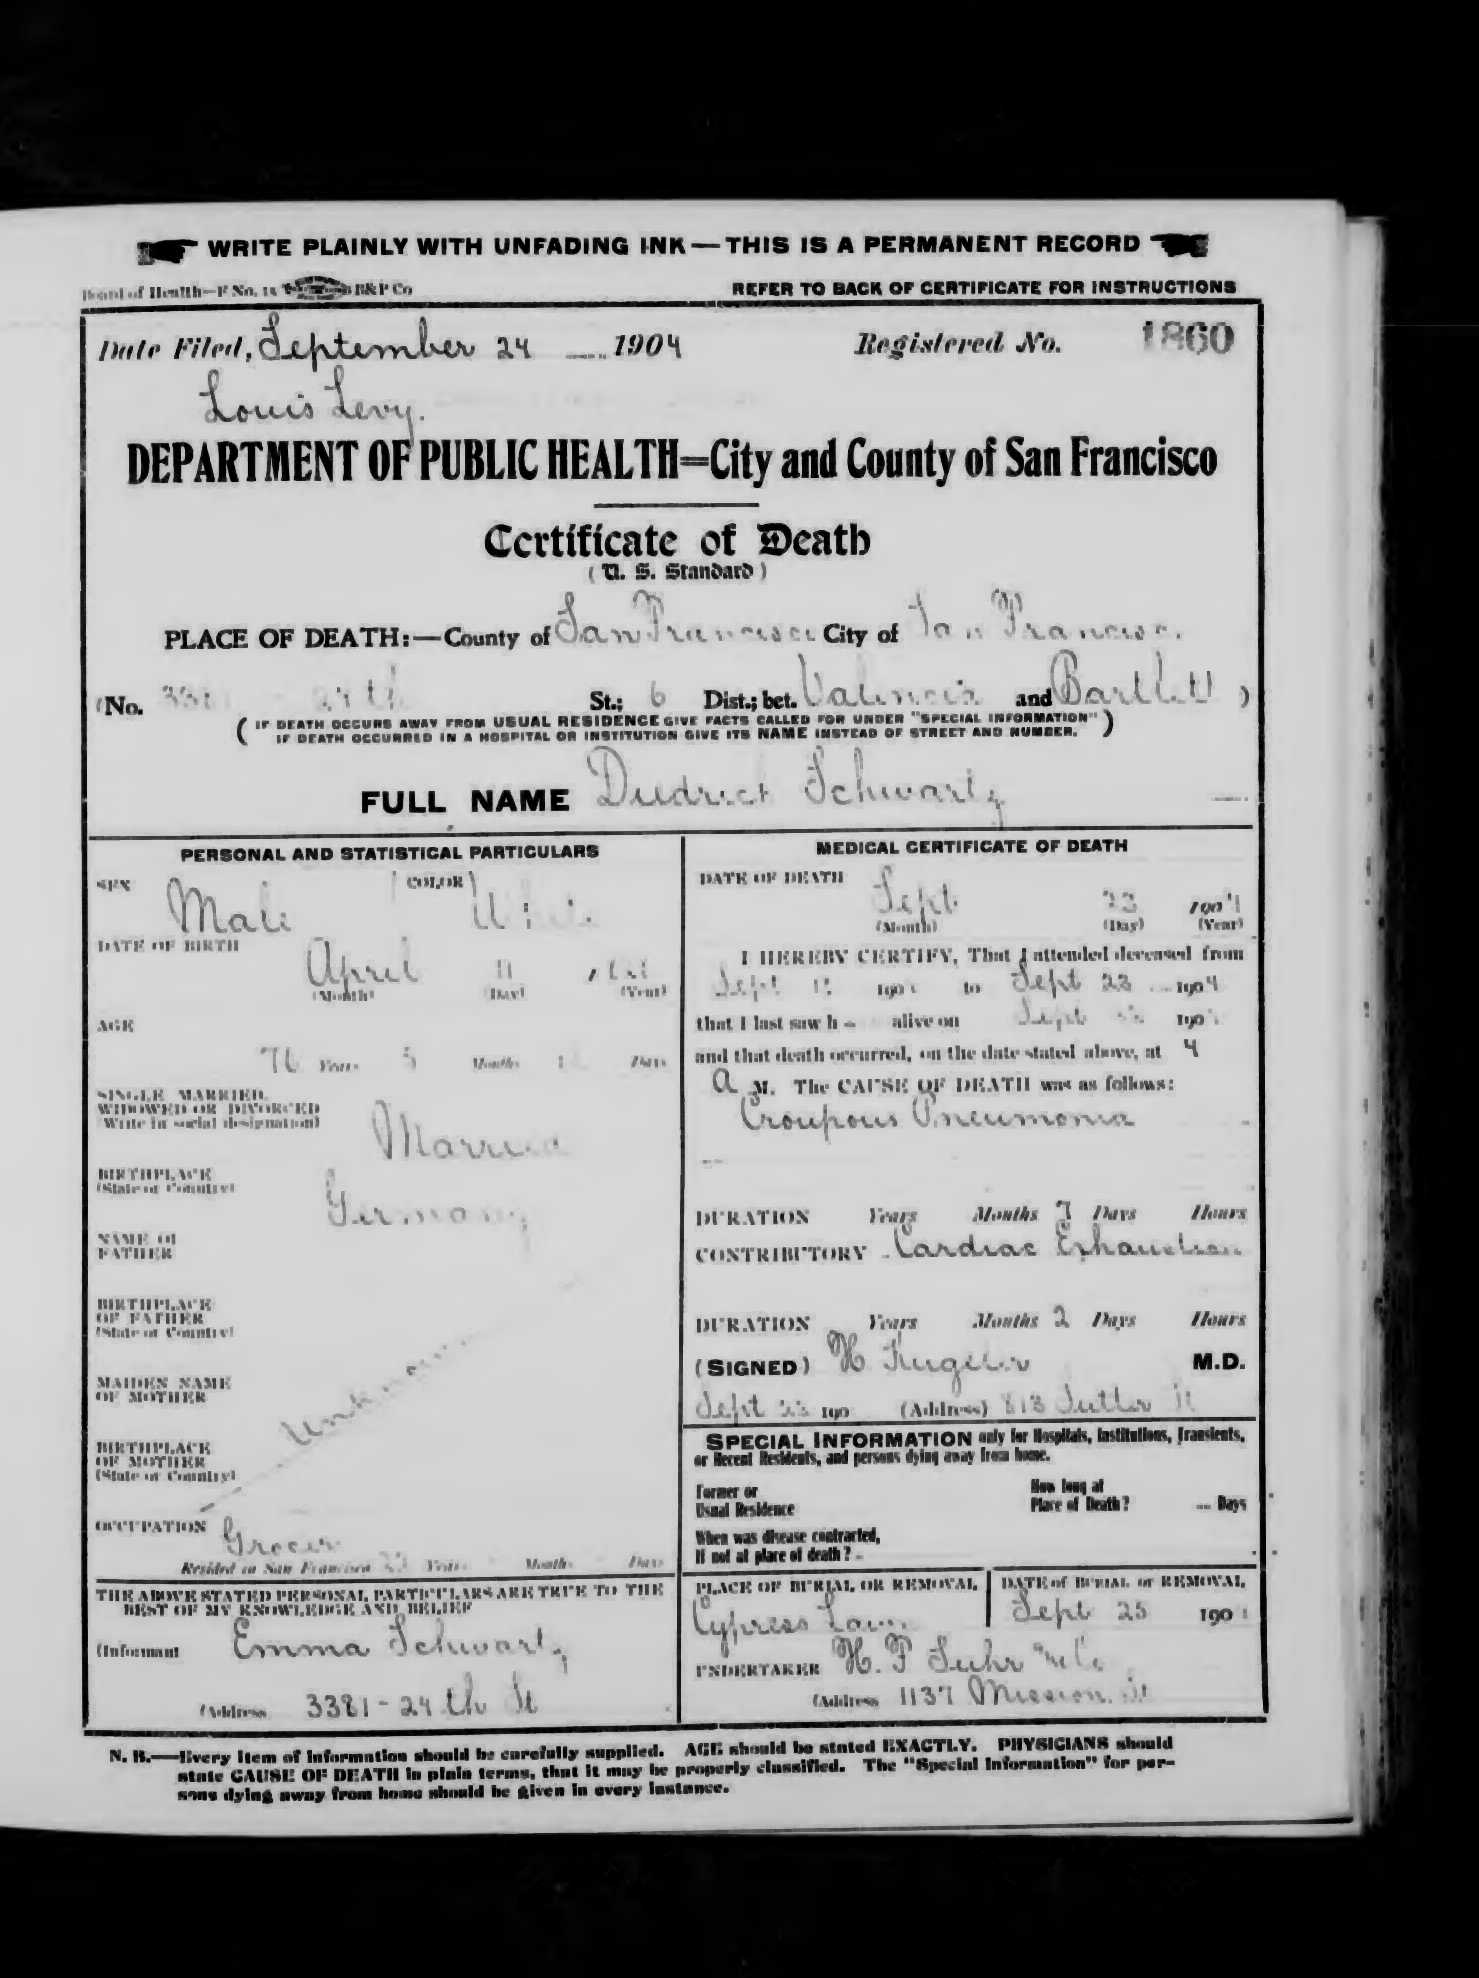 WRITE PLAINLY WITH UNFADING INK — THIS IS A PERMANENT RECORD
Board of Health—F No. B&P Co REFER TO BACK OF CERTIFICATE FOR INSTRUCTIONS
Date Filed, September 24 1904 Registered No. 1860
Louis Levy.
DEPARTMENT OF PUBLIC HEALTH=City and County of San Francisco
Certificate of Death
( U. S. Standard )
PLACE OF DEATH:—County of San Francisco City of San Francisco
(No. 3381 - 24th St.; 6 Dist.; bet. Valencia and Bartlett )
( IF DEATH OCCURS AWAY FROM USUAL RESIDENCE GIVE FACTS CALLED FOR UNDER "SPECIAL INFORMATION" )
( IF DEATH OCCURRED IN A HOSPITAL OR INSTITUTION GIVE ITS NAME INSTEAD OF STREET AND NUMBER. )
FULL NAME Diedrich Schwartz
PERSONAL AND STATISTICAL PARTICULARS
SEX Male COLOR White
DATE OF BIRTH April 11
(Month) (Day) (Year)
AGE
76 Years 5 Months Days
SINGLE MARRIED,
WIDOWED OR DIVORCED
(Write in social designation) Married
BIRTHPLACE
(State or Country) Germany
NAME OF
FATHER
BIRTHPLACE
OF FATHER
(State or Country)
MAIDEN NAME
OF MOTHER
Unknown
BIRTHPLACE
OF MOTHER
(State or Country)
OCCUPATION Grocer
Resided in San Francisco Years Months Days
THE ABOVE STATED PERSONAL PARTICULARS ARE TRUE TO THE
BEST OF MY KNOWLEDGE AND BELIEF
(Informant Emma Schwartz
(Address 3381 - 24th St
MEDICAL CERTIFICATE OF DEATH
DATE OF DEATH Sept 23 1904
(Month) (Day) (Year)
I HEREBY CERTIFY, That I attended deceased from
Sept 190 to Sept 22 1904
that I last saw h alive on Sept 190
and that death occurred, on the date stated above, at 4
A M. The CAUSE OF DEATH was as follows:
Croupous Pneumonia
DURATION Years Months 7 Days Hours
CONTRIBUTORY Cardiac Exhaustion
DURATION Years Months 2 Days Hours
(SIGNED) H Kugeler M.D.
Sept 190 (Address) 813 Sutter St
SPECIAL INFORMATION only for Hospitals, Institutions, Transients,
or Recent Residents, and persons dying away from home.
Former or
Usual Residence
How long at
Place of Death? Days
When was disease contracted,
If not at place of death?
PLACE OF BURIAL OR REMOVAL
Cypress Lawn
DATE of BURIAL or REMOVAL
Sept 25 190
UNDERTAKER H. F Suhr & Co
(Address 1137 Mission St
N. B.—Every item of information should be carefully supplied. AGE should be stated EXACTLY. PHYSICIANS should
state CAUSE OF DEATH in plain terms, that it may be properly classified. The "Special Information" for per-
sons dying away from home should be given in every instance.